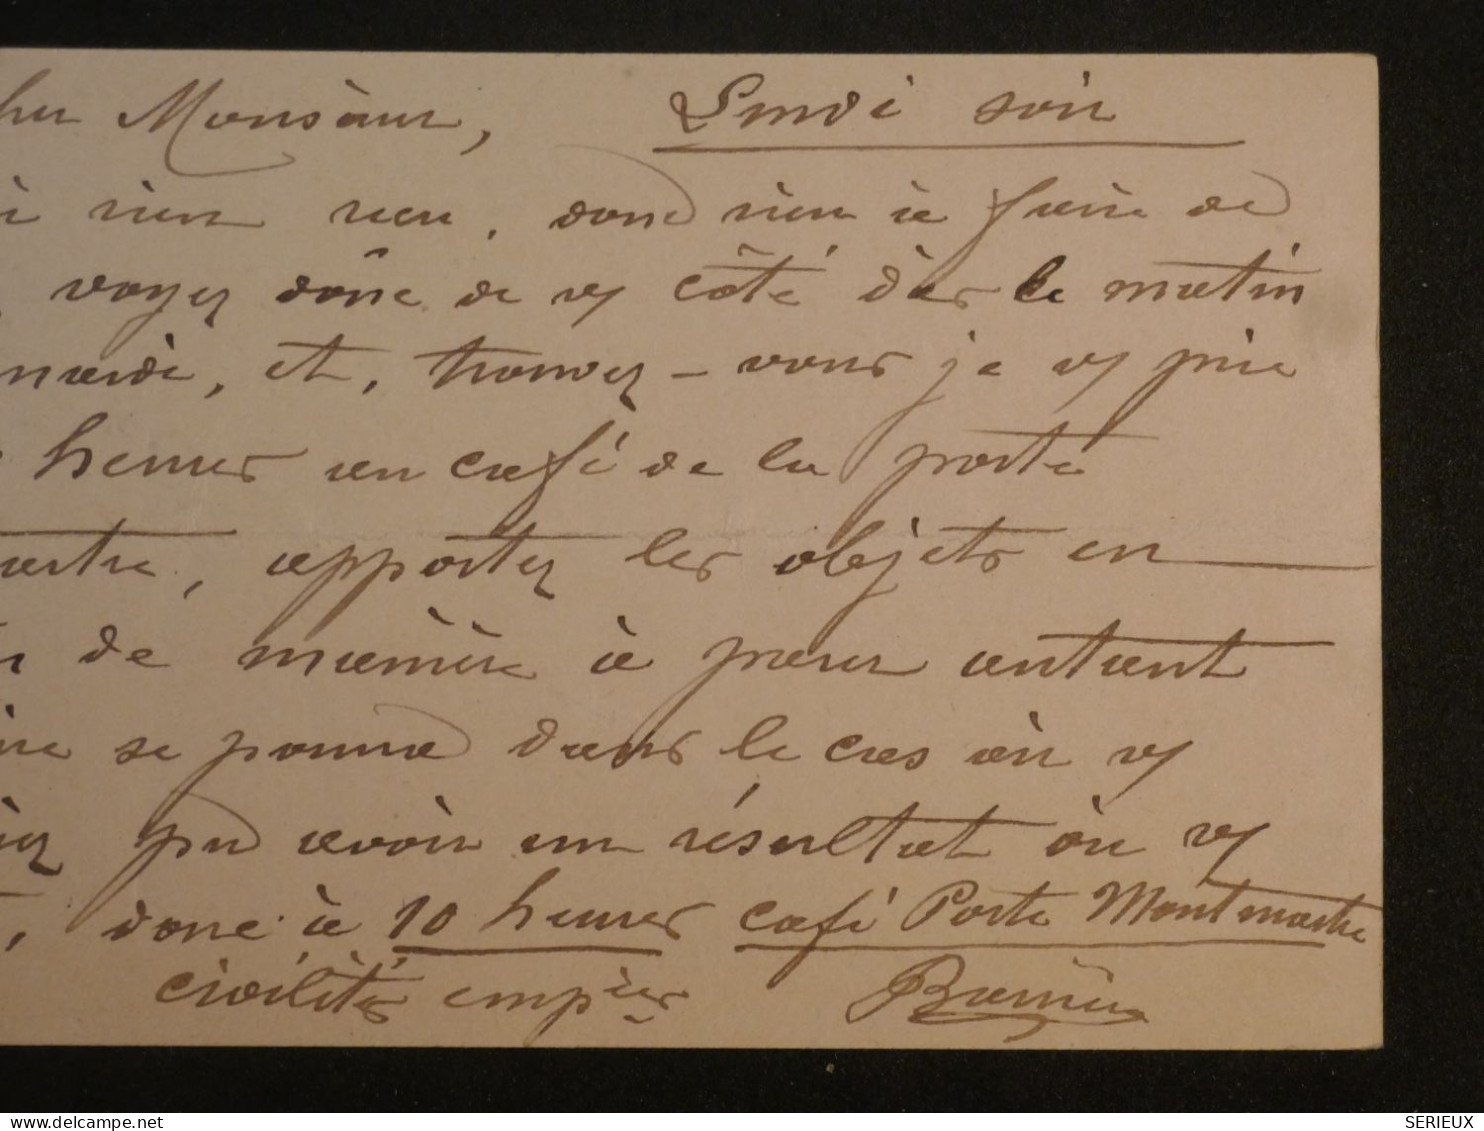 her Monsieur, Lundi soir
ai rien reçu, donc rien à faire de
, voyez donc de vs côté dès le matin
mardi, et, trouvez-vous je vs prie
heures au café de la porte
artre, apportez les objets en
de manière à parer autant
ire se pourra dans le cas où vs
iez pu avoir un résultat où vs
, donc à 10 heures café Porte Montmartre
civilités emp.ées
SERIEUX